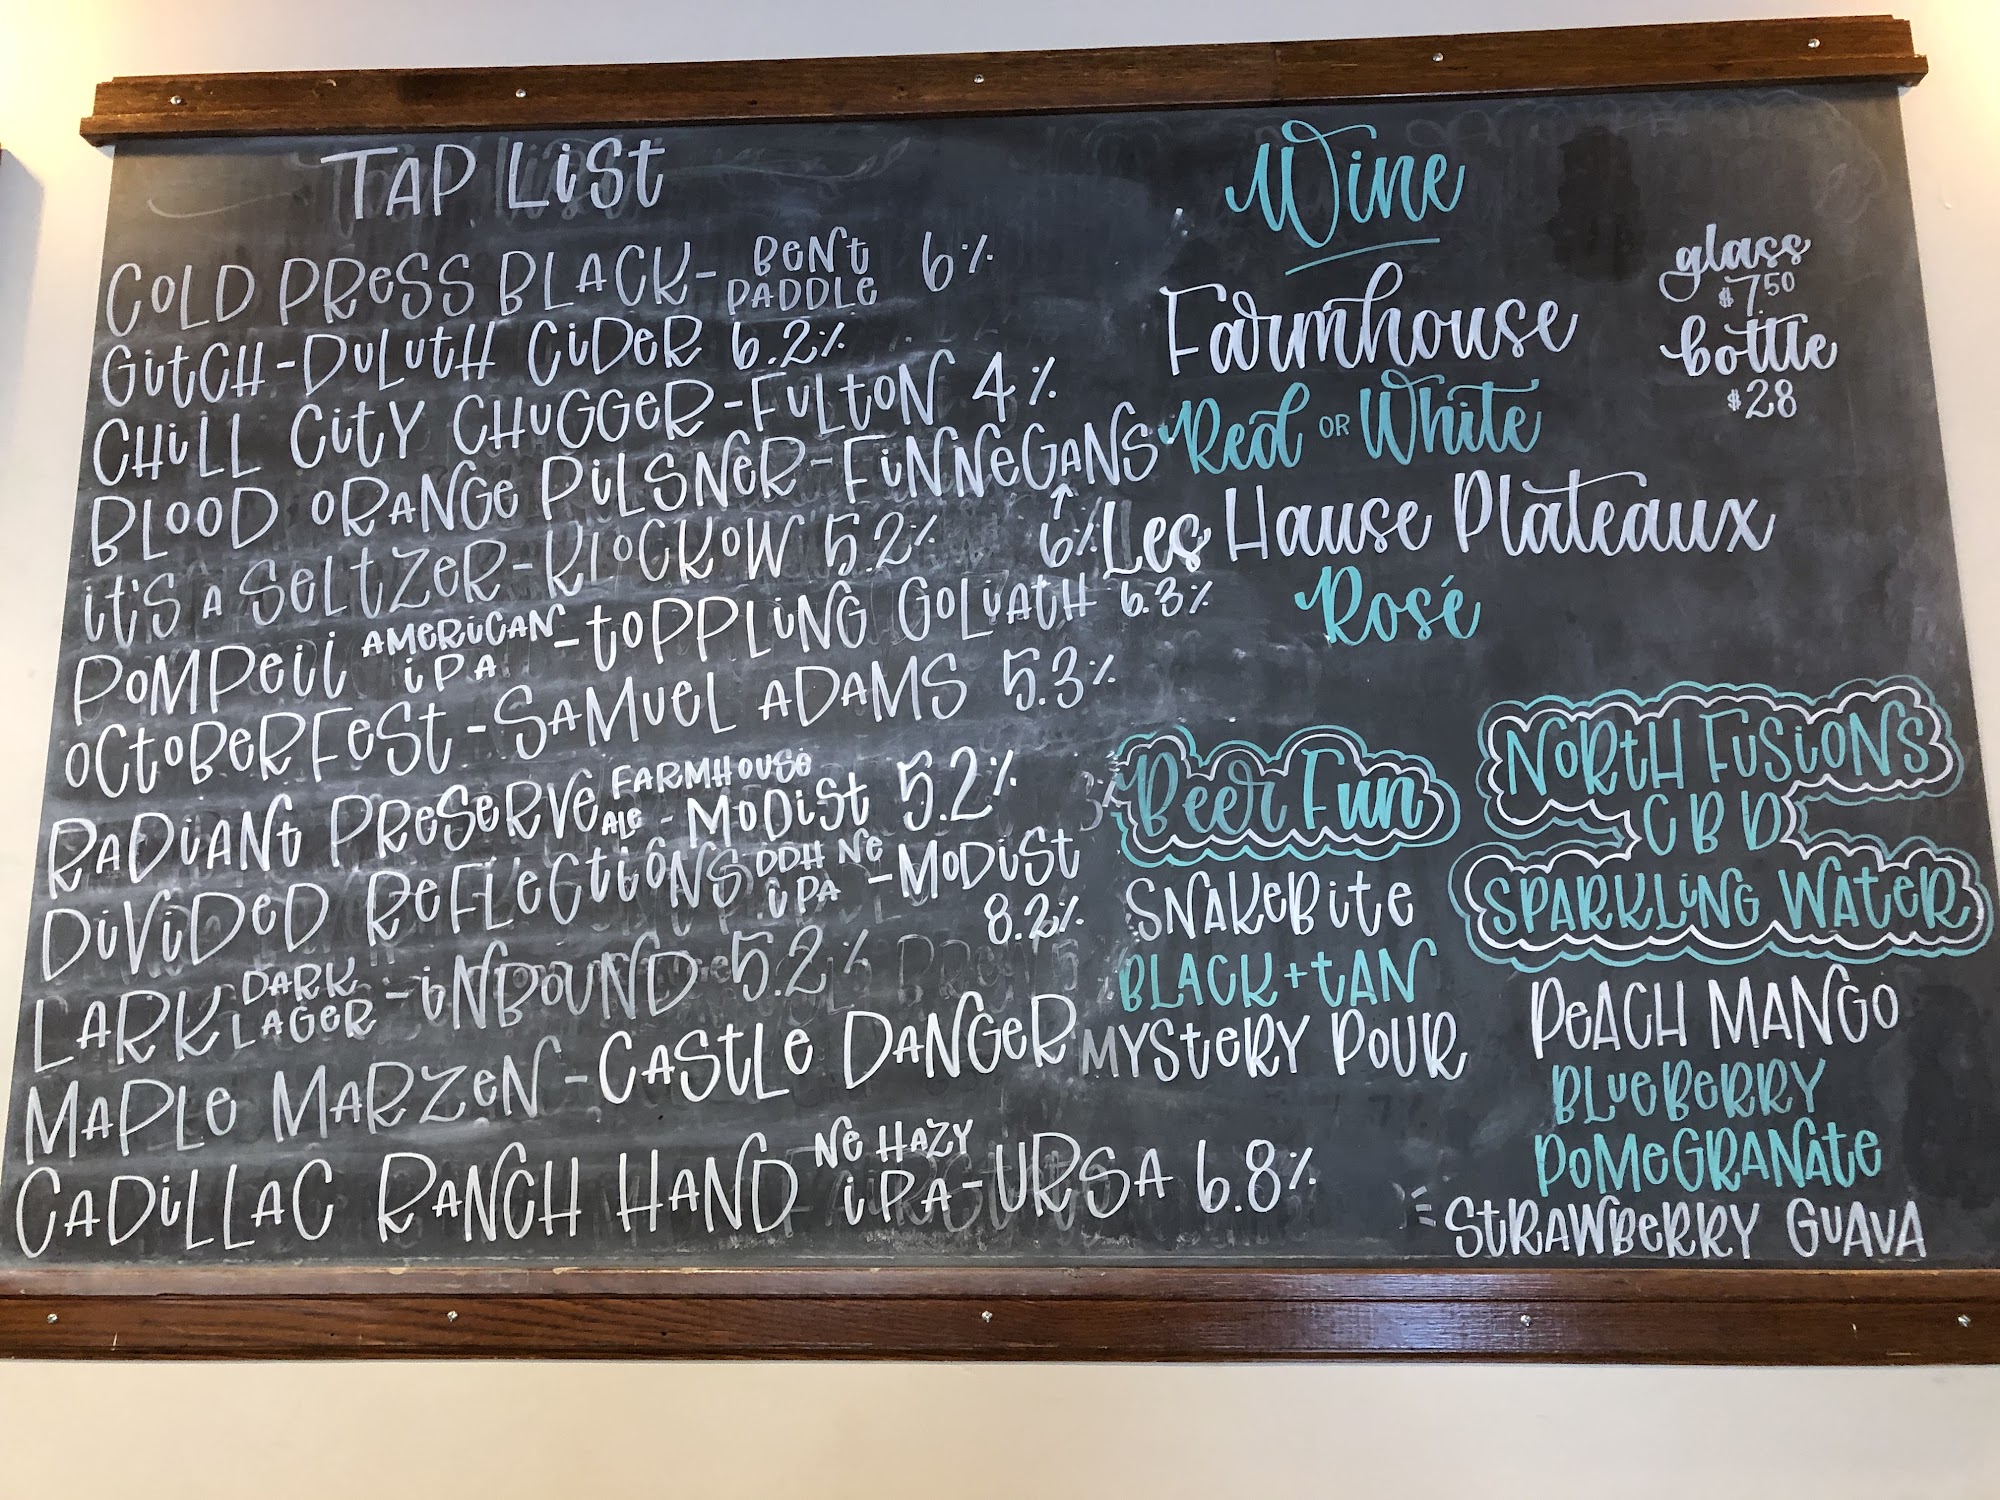 TAP LIST
COLD PRESS BLACK - BENT PADDLE 6%
GITCH - DULUTH CIDER 6.2%
CHILL CITY CHUGGER - FULTON 4%
BLOOD ORANGE PILSNER - FINNEGANS
6%
IT'S A SELTZER - KLOCKOW 5.2%
POMPEII AMERICAN IPA - TOPPLING GOLIATH 6.3%
OCTOBERFEST - SAMUEL ADAMS 5.3%
RADIANT PRESERVE FARMHOUSE ALE - MODIST 5.2%
DIVIDED REFLECTIONS DDH NE IPA - MODIST
8.2%
LARK DARK LAGER - INBOUND 5.2%
MAPLE MARZEN - CASTLE DANGER
CADILLAC RANCH HAND NE HAZY IPA - URSA 6.8%
Wine
Farmhouse
Red OR White
Les Hause Plateaux
Rosé
glass
$7.50
bottle
$28
Beer Fun
SNAKEBITE
BLACK + TAN
MYSTERY POUR
NORTH FUSIONS
CBD
SPARKLING WATER
PEACH MANGO
BLUEBERRY
POMEGRANATE
STRAWBERRY GUAVA